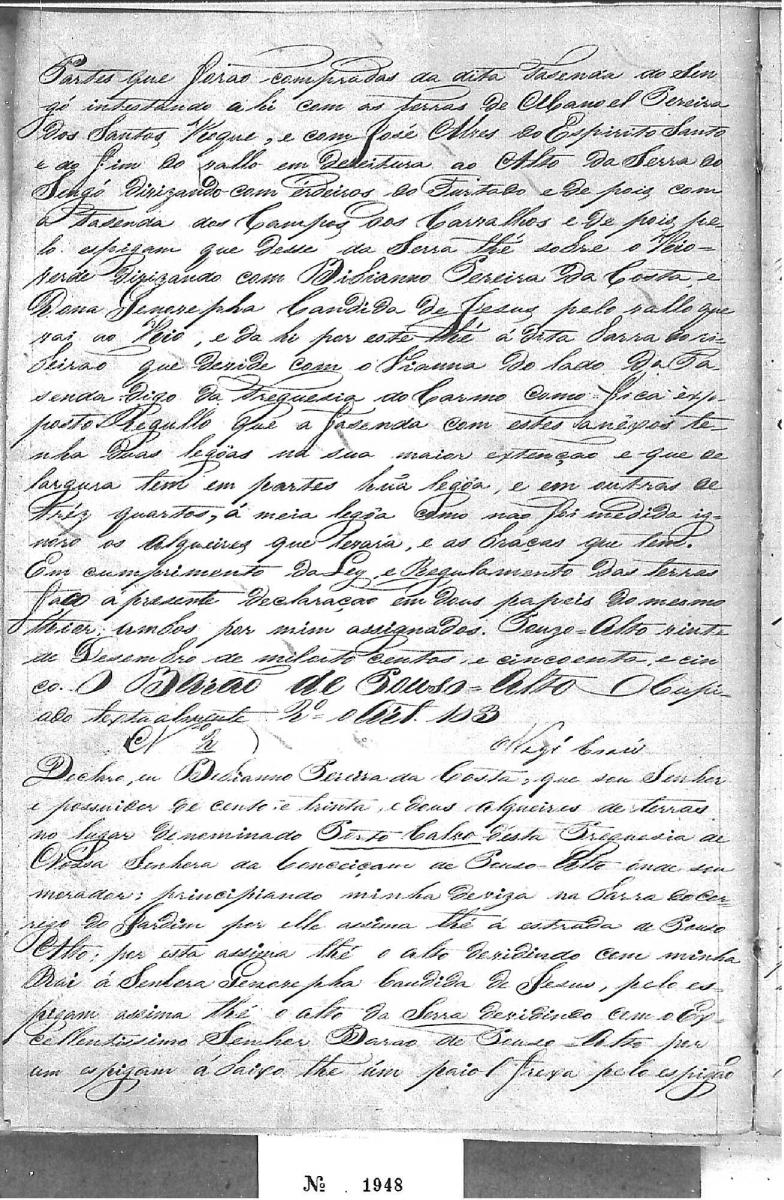 Partes que forão compradas da dita Fasenda do Sen-
gó intestando ahi com as terras de Manoel Pereira
dos Santos, Roque, e com José Alves do Espirito Santo
e do fim do vallo em dereitura ao Alto da Serra do
Sengó divizando com érdeiros do Furtado e de pois, com
a Fasenda dos Campos, dos Carvalhos e de pois, pe-
lo espigam que desse da Serra thé sobre o Rio-
verde divizando com Bibianno Pereira da Costa, e
Dona Genorepha Candida de Jesus, pelo vallo que
vai ao Rio, e dahi por este thé á dita Barra do ri-
beirão que devide com o Vianna do lado da Fa-
senda digo da Freguesia do Carmo como fica exp-
posto Regullo que a fasenda com estes anéxos te-
nha duas legôas na sua maior extenção e que de
largura tem em partes huã legôa, e em outras de
tréz quartos, á meia legôa como não foi medida ig-
nóro os alqueires que levaria, e as braças que tem.
Em cumprimento da Ley, e Regulamento das terras
faço a presente declaração em dous papeis do mesmo
theor, ambos por mim assignados. Pouzo-Alto vinte
de Desembro de mil oito centos, e cincoenta, e cin-
co. O Barão de Pouso-Alto
ado textoalmente
Declaro, eu Bibianno Pereira da Costa, que sou Senhor
e possuidor de cento e trinta, e dous alqueires de terras
no lugar denominado Porto Calvo desta Freguesia de
Nossa Senhora da Conceiçam de Pouso-Alto onde sou
morador; principiando minha deviza na Barra do cor-
rego do Jardim por elle assima thé á estrada de Pouso
Alto; por esta assima thé o alto devidindo com minha
Mai á Senhora Genorepha Candida de Jesus, pelo es-
pigam assima thé o alto da Serra devidindo com o Ex-
cellentissimo Senhor Barão de Pouso-Alto por
um espigam á baixo thé um paio pelo espigão
Nº 1948